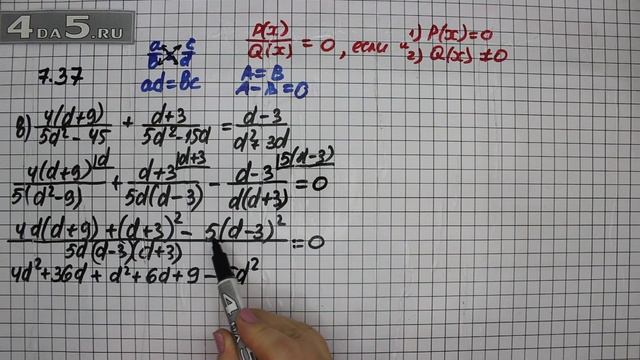 4DA5.RU
a/b = c/d
ad = bc
P(x)/Q(x) = 0, если
1) P(x)=0
2) Q(x)≠0
7.37
A = B
A - B = 0
в) 4(d+9)/(5d²-45) + (d+3)/(5d²-15d) = (d-3)/(d²+3d)
4(d+9)|d/5(d²-9) + d+3|d+3/5d(d-3) - d-3|5(d-3)/d(d+3) = 0
(4d(d+9)+(d+3)²-5(d-3)²)/(5d(d-3)(d+3)) = 0
4d²+36d+d²+6d+9-
4DA5.RU